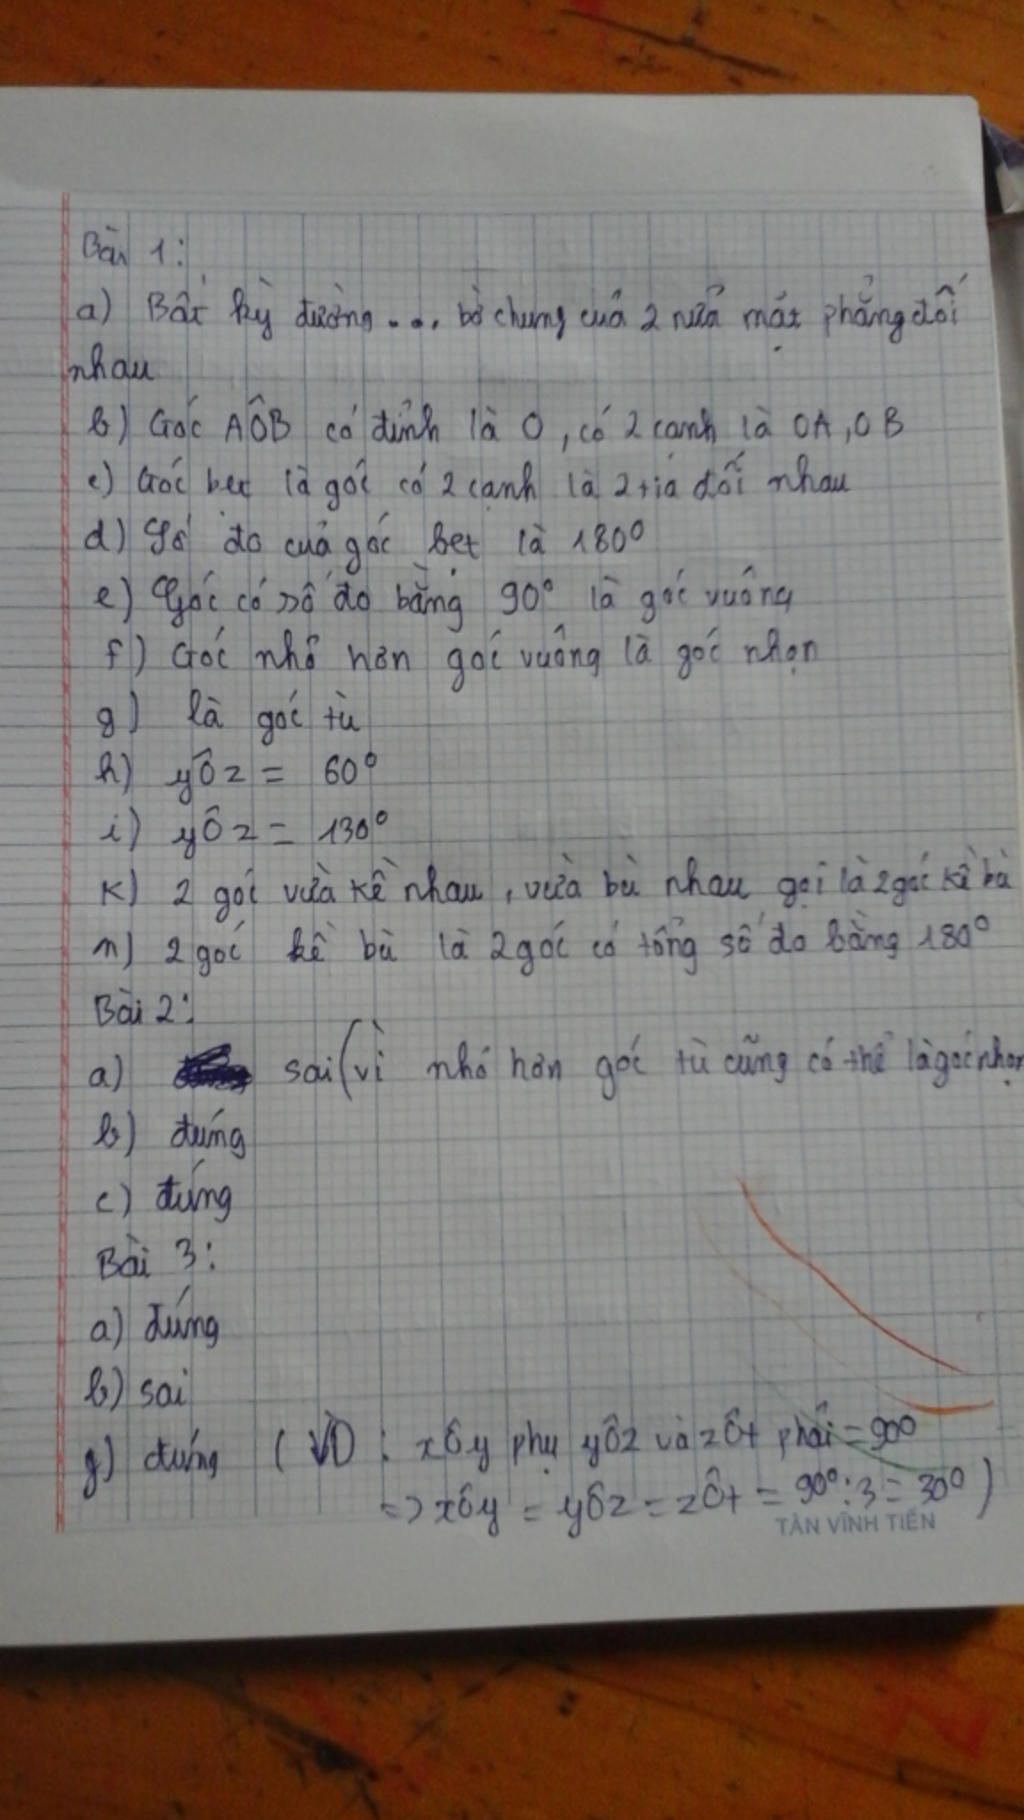 Bài 1:
a) Bất kỳ đường... bờ chung của 2 nửa mặt phẳng đối
nhau
b) Góc AÔB có đỉnh là O, có 2 cạnh là OA, OB
c) Góc bẹt là góc có 2 cạnh là 2 tia đối nhau
d) Số đo của góc bẹt là 180°
e) Góc có số đo bằng 90° là góc vuông
f) Góc nhỏ hơn góc vuông là góc nhọn
g) là góc tù
h) yÔz = 60°
i) yÔz = 130°
k) 2 góc vừa kề nhau, vừa bù nhau gọi là 2 góc kề bù
n) 2 góc kề bù là 2 góc có tổng số đo bằng 180°
Bài 2:
a) sai (vì nhỏ hơn góc tù cũng có thể là góc nhọn
b) đúng
c) đúng
Bài 3:
a) đúng
b) sai
g) đúng (VD: xÔy phụ yÔz và zÔt phải = 90°
=> xÔy = yÔz = zÔt = 90°:3 = 30°)
TÂN VĨNH TIẾN